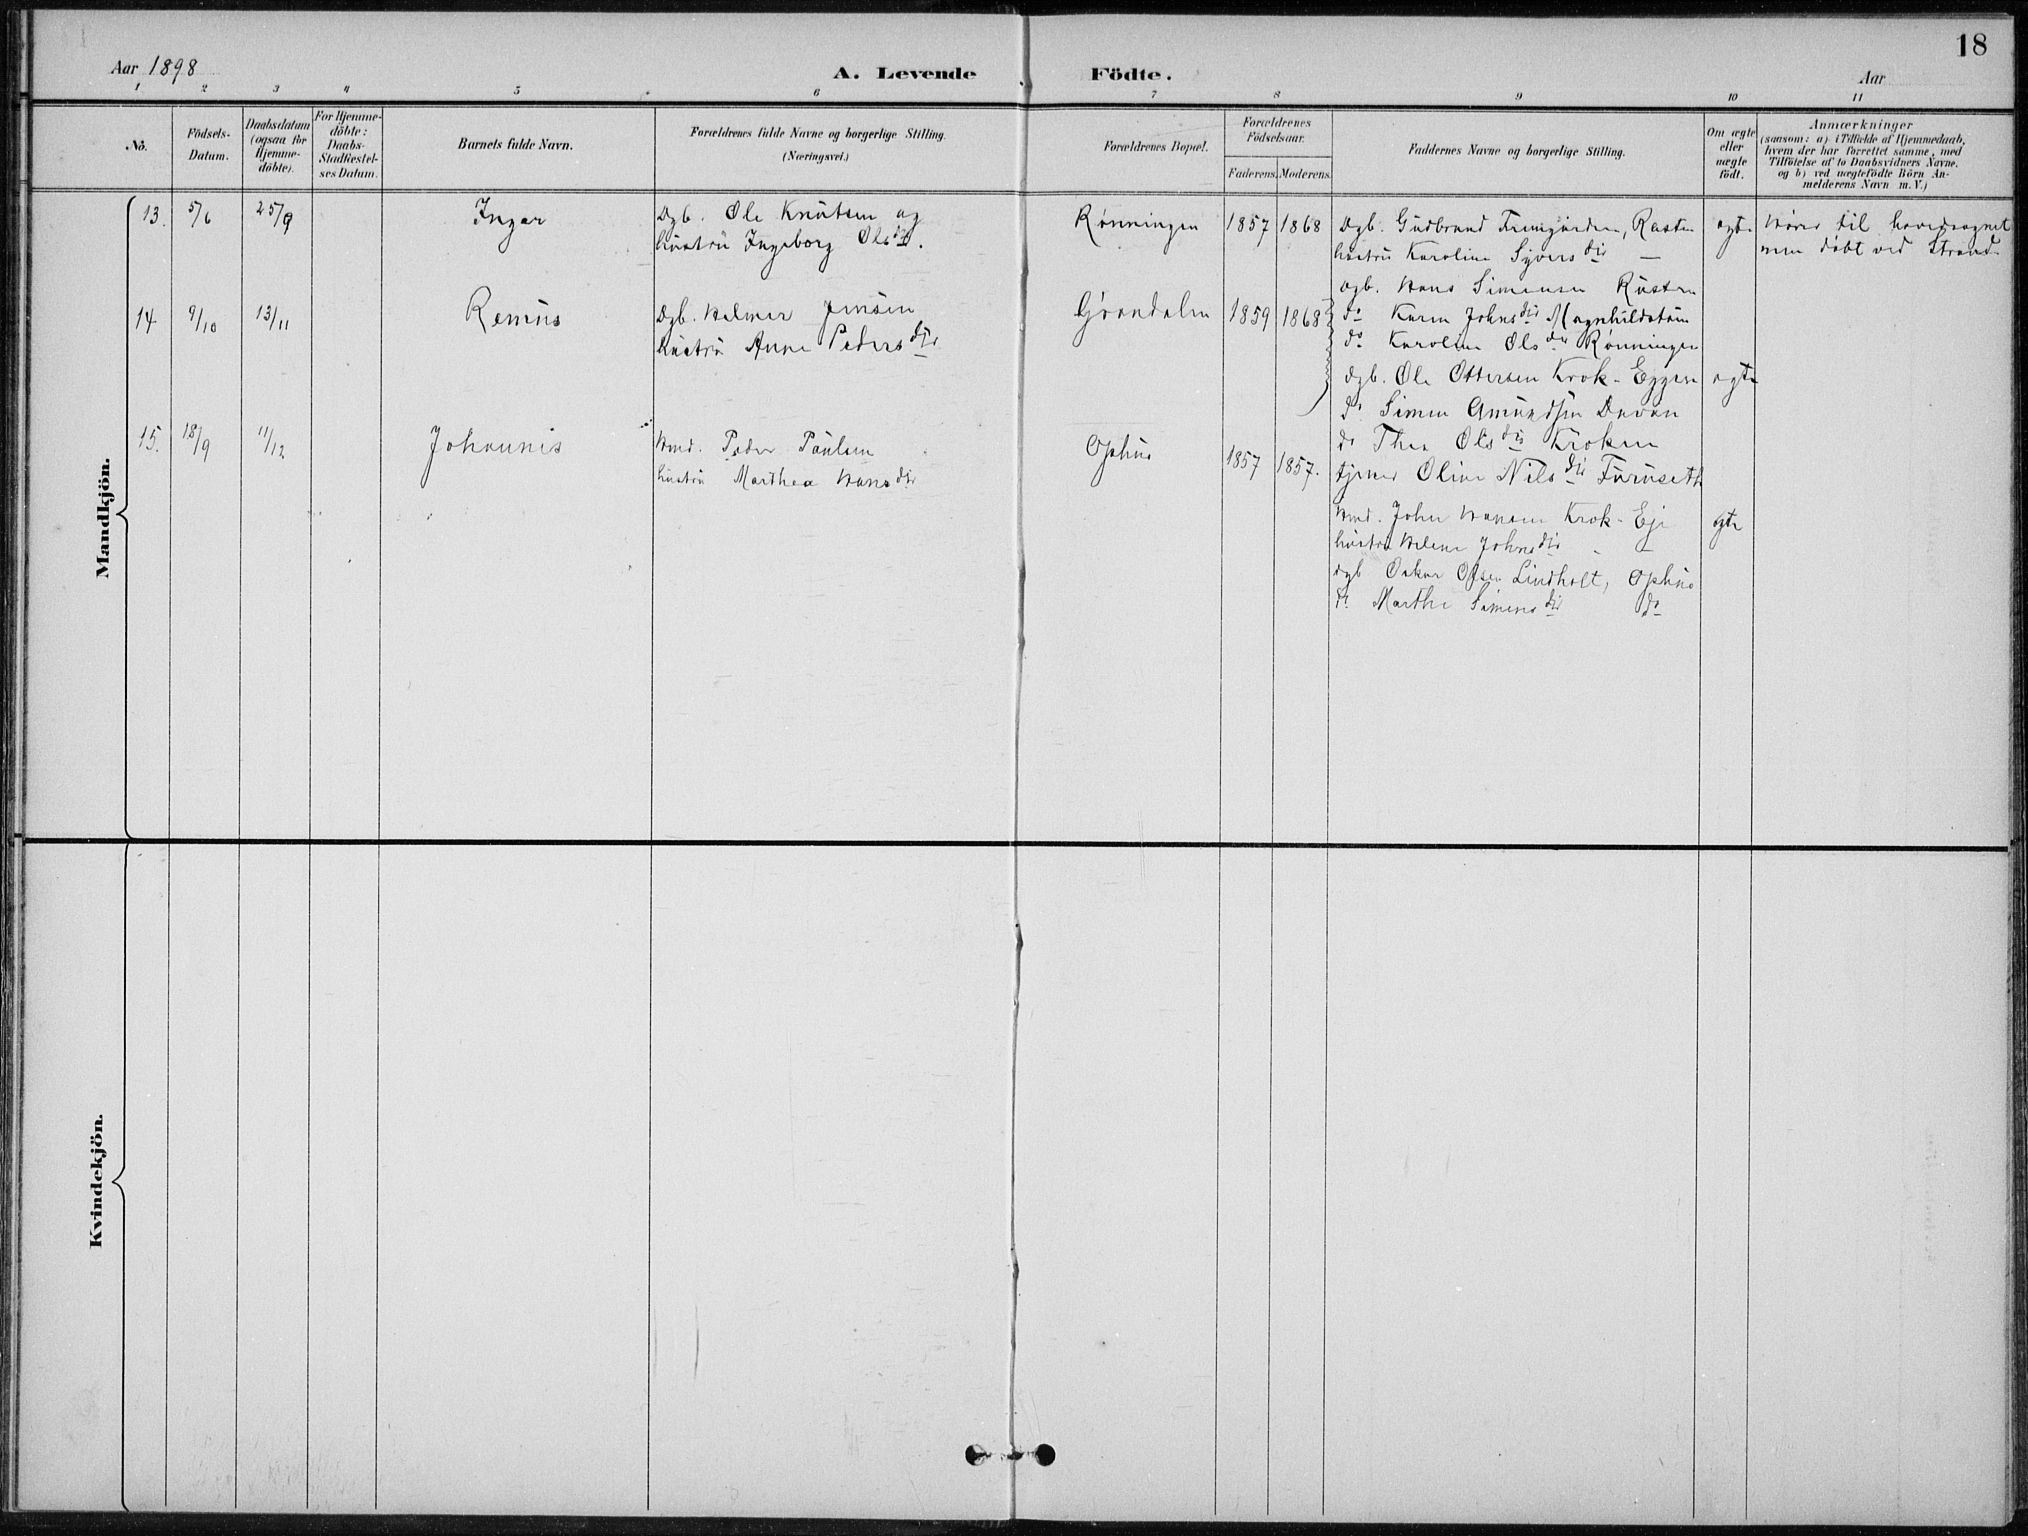 18
Aar 1898
A. Levende Födte.
Aar
1 2 3 4 5 6 7 8 9 10 11
No.
Födsels-Datum.
Daabsdatum (ogsaa for Hjemme-döbte).
For Hjemme-döbte: Daabs-Stadfæstel-ses Datum.
Barnets fulde Navn.
Forældrenes fulde Navne og borgerlige Stilling.
(Næringsvei.)
Forældrenes Bopæl.
Forældrenes Födselsaar.
Faderens. Moderens.
Faddernes Navne og borgerlige Stilling.
Om ægte eller uægte födt.
Anmærkninger
(saasom: a) i Tilfælde af Hjemmedaab,
hvem der har forrettet samme, med
Tilföielse af to Daabsvidners Navne.
og b) ved uægtefödte Börn An-
melderens Navn m. V.)
Mandkjön.
13. 5/6 25/9 Ingar
Dgb. Ole Knutsen og
hustru Ingeborg Olsdtr.
Rønningen 1857 1868
Dgb. Gudbrand Rasten
hustru Karoline Syversdtr —
dgb. Hans Simensen Rusten
do Karen Johnsdtr Magnhildstuen
do Karoline Olsdtr Rønningen
ægte
Hører til hovedsognet
men døbt ved Strand
14 9/10 13/11 Remus
Dgb. Helmer Jensen
hustru Anne Pedersdtr
Grøndalen 1859 1868
dgb. Ole Ottersen Krok-Eggen
do Simen Amundsen Davan
do Thea Olsdtr Kroken
tjener Oline Nilsdtr Furuseth
ægte
15. 18/9 11/12 Johannes
Hmd. Peder Paulsen
hustru Marthea Hansdtr
Ophus 1857 1857.
Hmd. John Hansen Krok-Eje
hustru Helene Johnsdtr - —
dgb Oskar Olsen Lindholt, Ophus
do Marthe Simensdtr do
ægte
Kvindekjön.